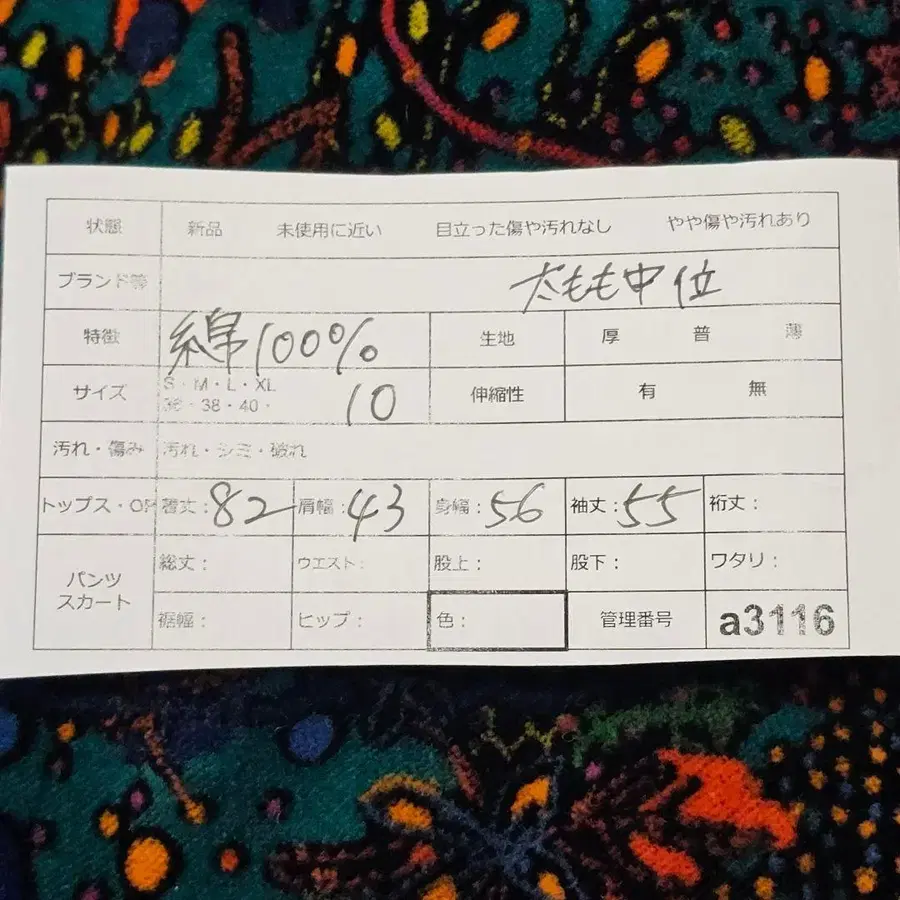 状態 新品 未使用に近い 目立った傷や汚れなし やや傷や汚れあり
ブランド等 太もも中位
特徴 綿100% 生地 厚 普 薄
サイズ S・M・L・XL 36・38・40・ 10 伸縮性 有 無
汚れ・傷み 汚れ・シミ・破れ
トップス・OP 着丈:82 肩幅:43 身幅:56 袖丈:55 裄丈:
パンツ スカート 総丈: ウエスト: 股上: 股下: ワタリ:
裾幅: ヒップ: 色: 管理番号 a3116